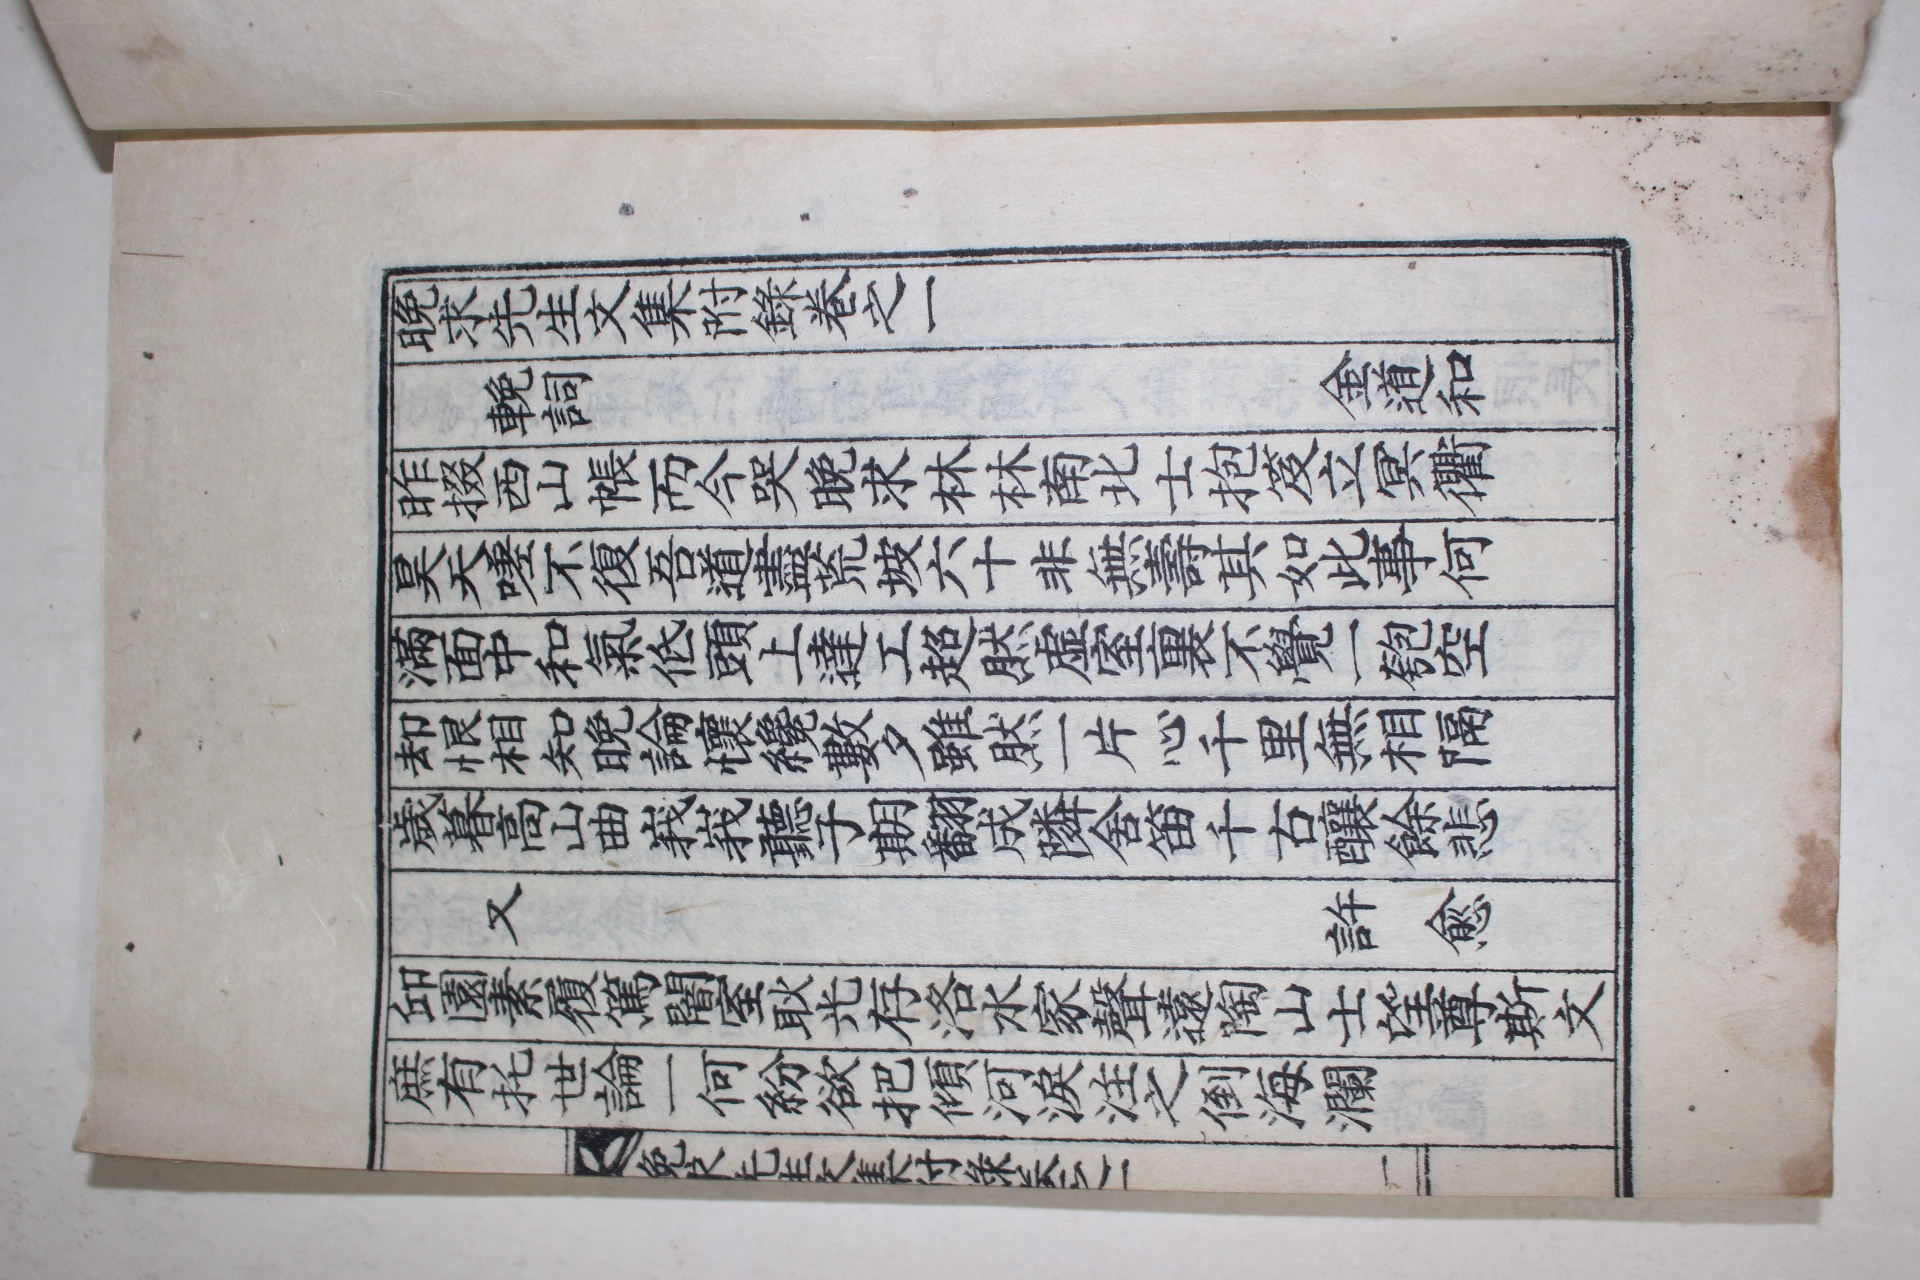 晩求先生文集附錄卷之一
輓詞
金道和
昨掇西山帳而今哭晩求林林南北士抱笈立冥衢
昊天嗟不復吾道盡荒坡六十非無壽其如此事何
滿面中和氣低頭上達工超然虛室裏不覺一匏空
却恨相知晩論懷纔數夕雖然一片心千里無相隔
歲暮高山曲峩峩聽子期翻成隣舍笛千古釀餘悲
又
許愈
邱園素履篤闇室耿光存洛水家聲遠陶山士望尊斯文
庶有托世論一何紛欲把傾河淚注之倒海瀾
晩求先生文集附錄卷之一
一